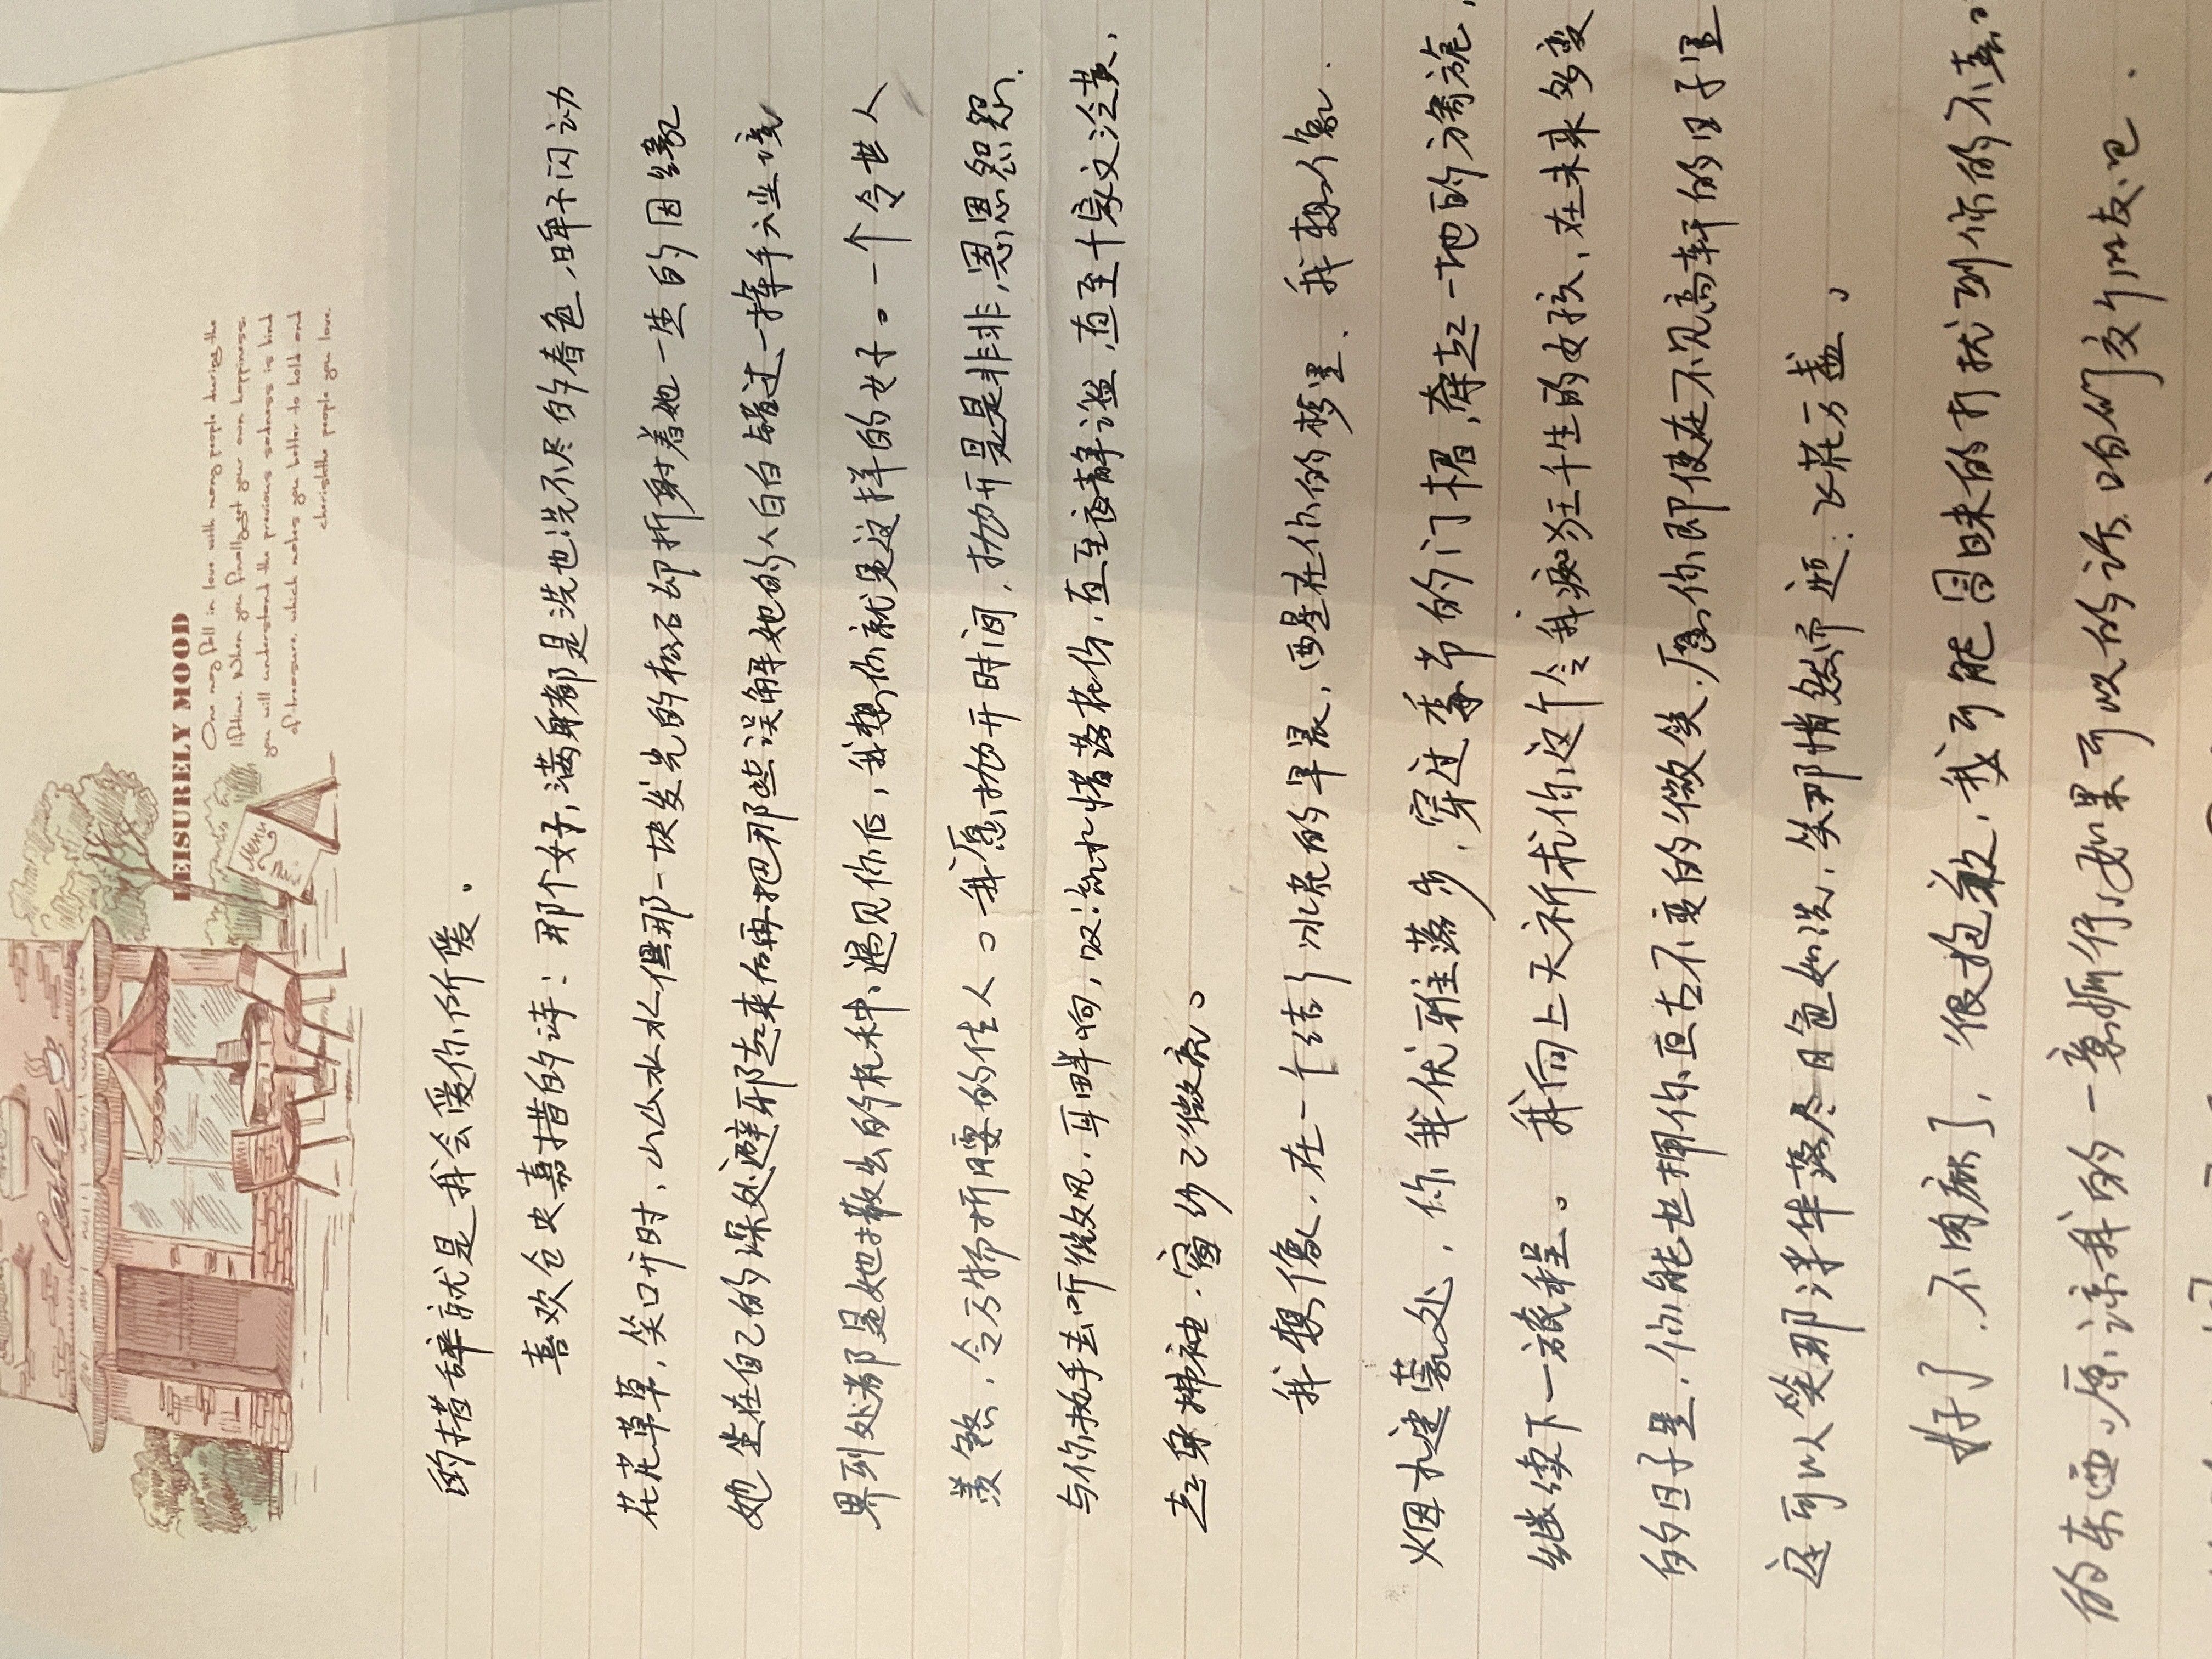 Cafe
Menu
LEISURELY MOOD
One may fall in love with many people during the
lifetime. When you finally get your own happiness,
you will understand the previous sadness is kind
of treasure, which makes you better to hold and
cherish the people you love.
的措辞就是我会爱你所爱、
喜欢仓央嘉措的诗：那个女子,满身都是洗也洗不尽的春色,眸子闪动
花花草草,笑口开时,山山水水但那一块发光的松石却折射着她一生的因缘
她坐在自己的深处避邪起来后再把那些误解她的人白白错过一挥手六尘境
界到处都是她撒出的花种、遇见你后,我想你就是这样的女子。一个令世人
羡煞,令万物折腰的佳人。我愿拗开时间,拗开是是非非,恩恩怨怨、
与你执手去听微风,耳畔响,叹流水惜落花伤,直至夜静谧,直至十家文泛黄、
起身拂袖,窗纱已微亮。
我想像,在一个结了冰凌的早晨,西星在你的梦里、我想像、
烟水迷蒙处,你我优雅落步,穿过季节的门楣,牵起一地的旖旎,
继续下一旅程。我向上天祈求你这个令我痴狂千生的女孩、在未来多变
的日子里,你能也拥你亘古不变的微笑.愿你即使在不见高轩的日子里
还可以笑那浮华落尽月色如洗,笑那悄然而逝:飞花万盏。
好了,不肉麻了,很抱歉,我可能冒昧的打扰到你的不喜
的东西。原谅我的一意孤行,如果可以的话,咱们交个朋友吧.